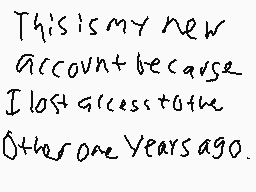 This is my new
account because
I lost access to the
Other one years ago.